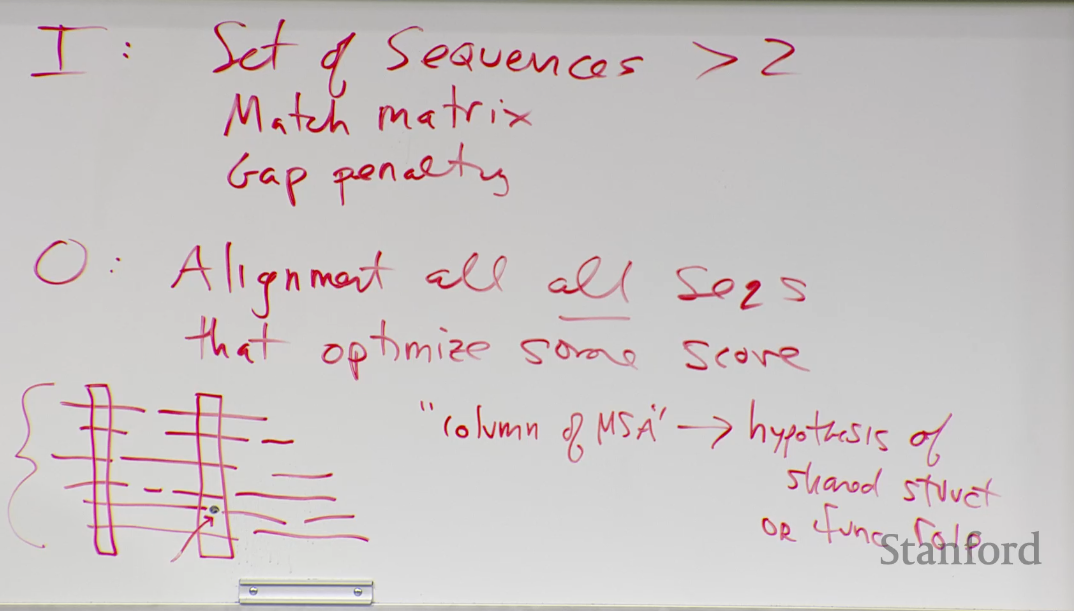 I: Set of Sequences > 2
Match matrix
Gap penalty
O: Alignment all all seqs
that optimize some score
"column of MSA" → hypothesis of
shared struct
OR func role
Stanford